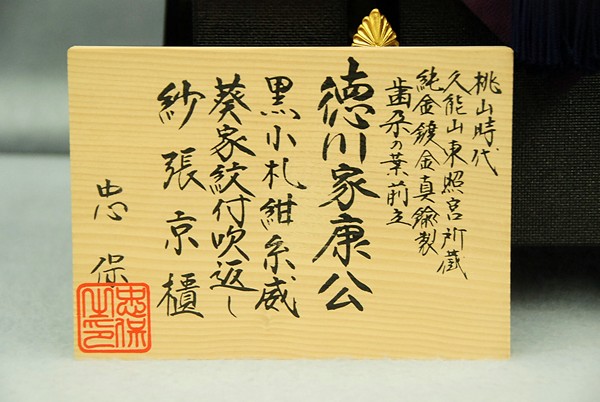 桃山時代
久能山東照宮所蔵
純金鍍金真鍮製
歯朶の葉前立
徳川家康公
黒小札紺糸威
葵家紋付吹返し
紗張京櫃
忠保
忠保之印